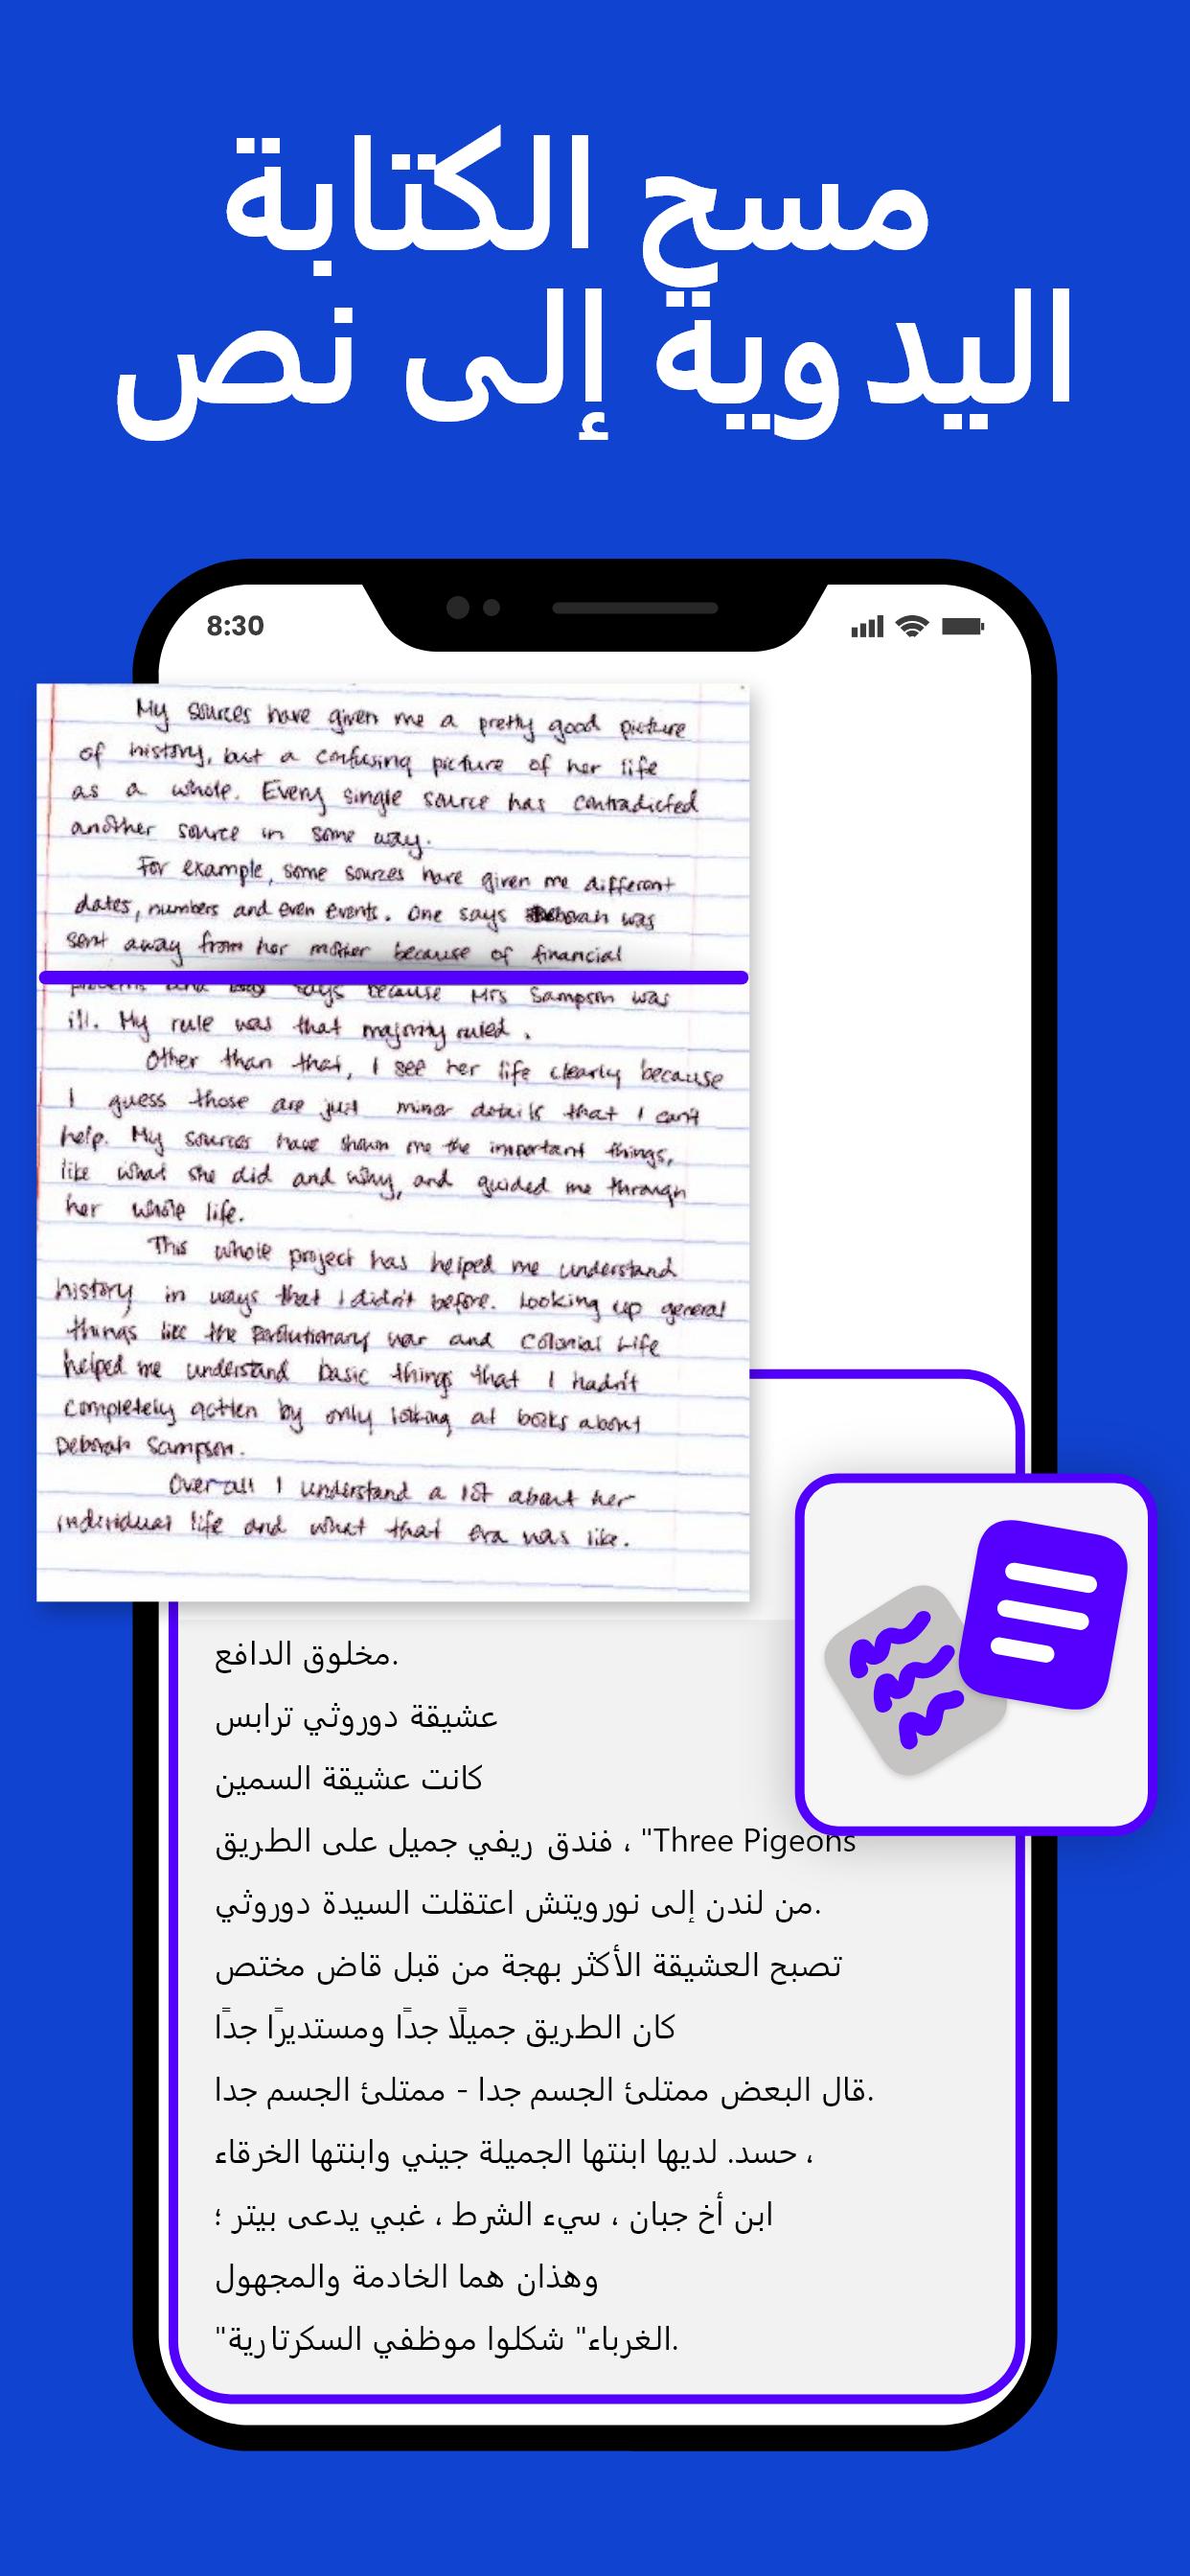 مسح الكتابة
اليدوية إلى نص
8:30
My sources have given me a pretty good picture
of history, but a confusing picture of her life
as a whole. Every single source has contradicted
another source in some way.
For example, some sources have given me different
dates, numbers and even events. One says Deborah was
sent away from her mother because of financial
problems and says because Mrs Sampson was
ill. My rule was that majority ruled.
Other than that, I see her life clearly because
I guess those are just minor details that I can't
help. My sources have shown me the important things,
like what she did and why, and guided me through
her whole life.
This whole project has helped me understand
history in ways that I didn't before. Looking up general
things like the Revolutionary war and Colonial Life
helped me understand basic things that I hadn't
completely gotten by only looking at books about
Deborah Sampson.
Overall I understand a lot about her
individual life and what that era was like.
مخلوق الدافع.
عشيقة دوروثي ترابس
كانت عشيقة السمين
فندق ريفي جميل على الطريق ، "Three Pigeons
من لندن إلى نورويتش اعتقلت السيدة دوروثي.
تصبح العشيقة الأكثر بهجة من قبل قاض مختص
كان الطريق جميلًا جدًا ومستديرًا جدًا
قال البعض ممتلئ الجسم جدا - ممتلئ الجسم جدا.
، حسد. لديها ابنتها الجميلة جيني وابنتها الخرقاء
ابن أخ جبان ، سيء الشرط ، غبي يدعى بيتر ؛
وهذان هما الخادمة والمجهول
الغرباء" شكلوا موظفي السكرتارية".